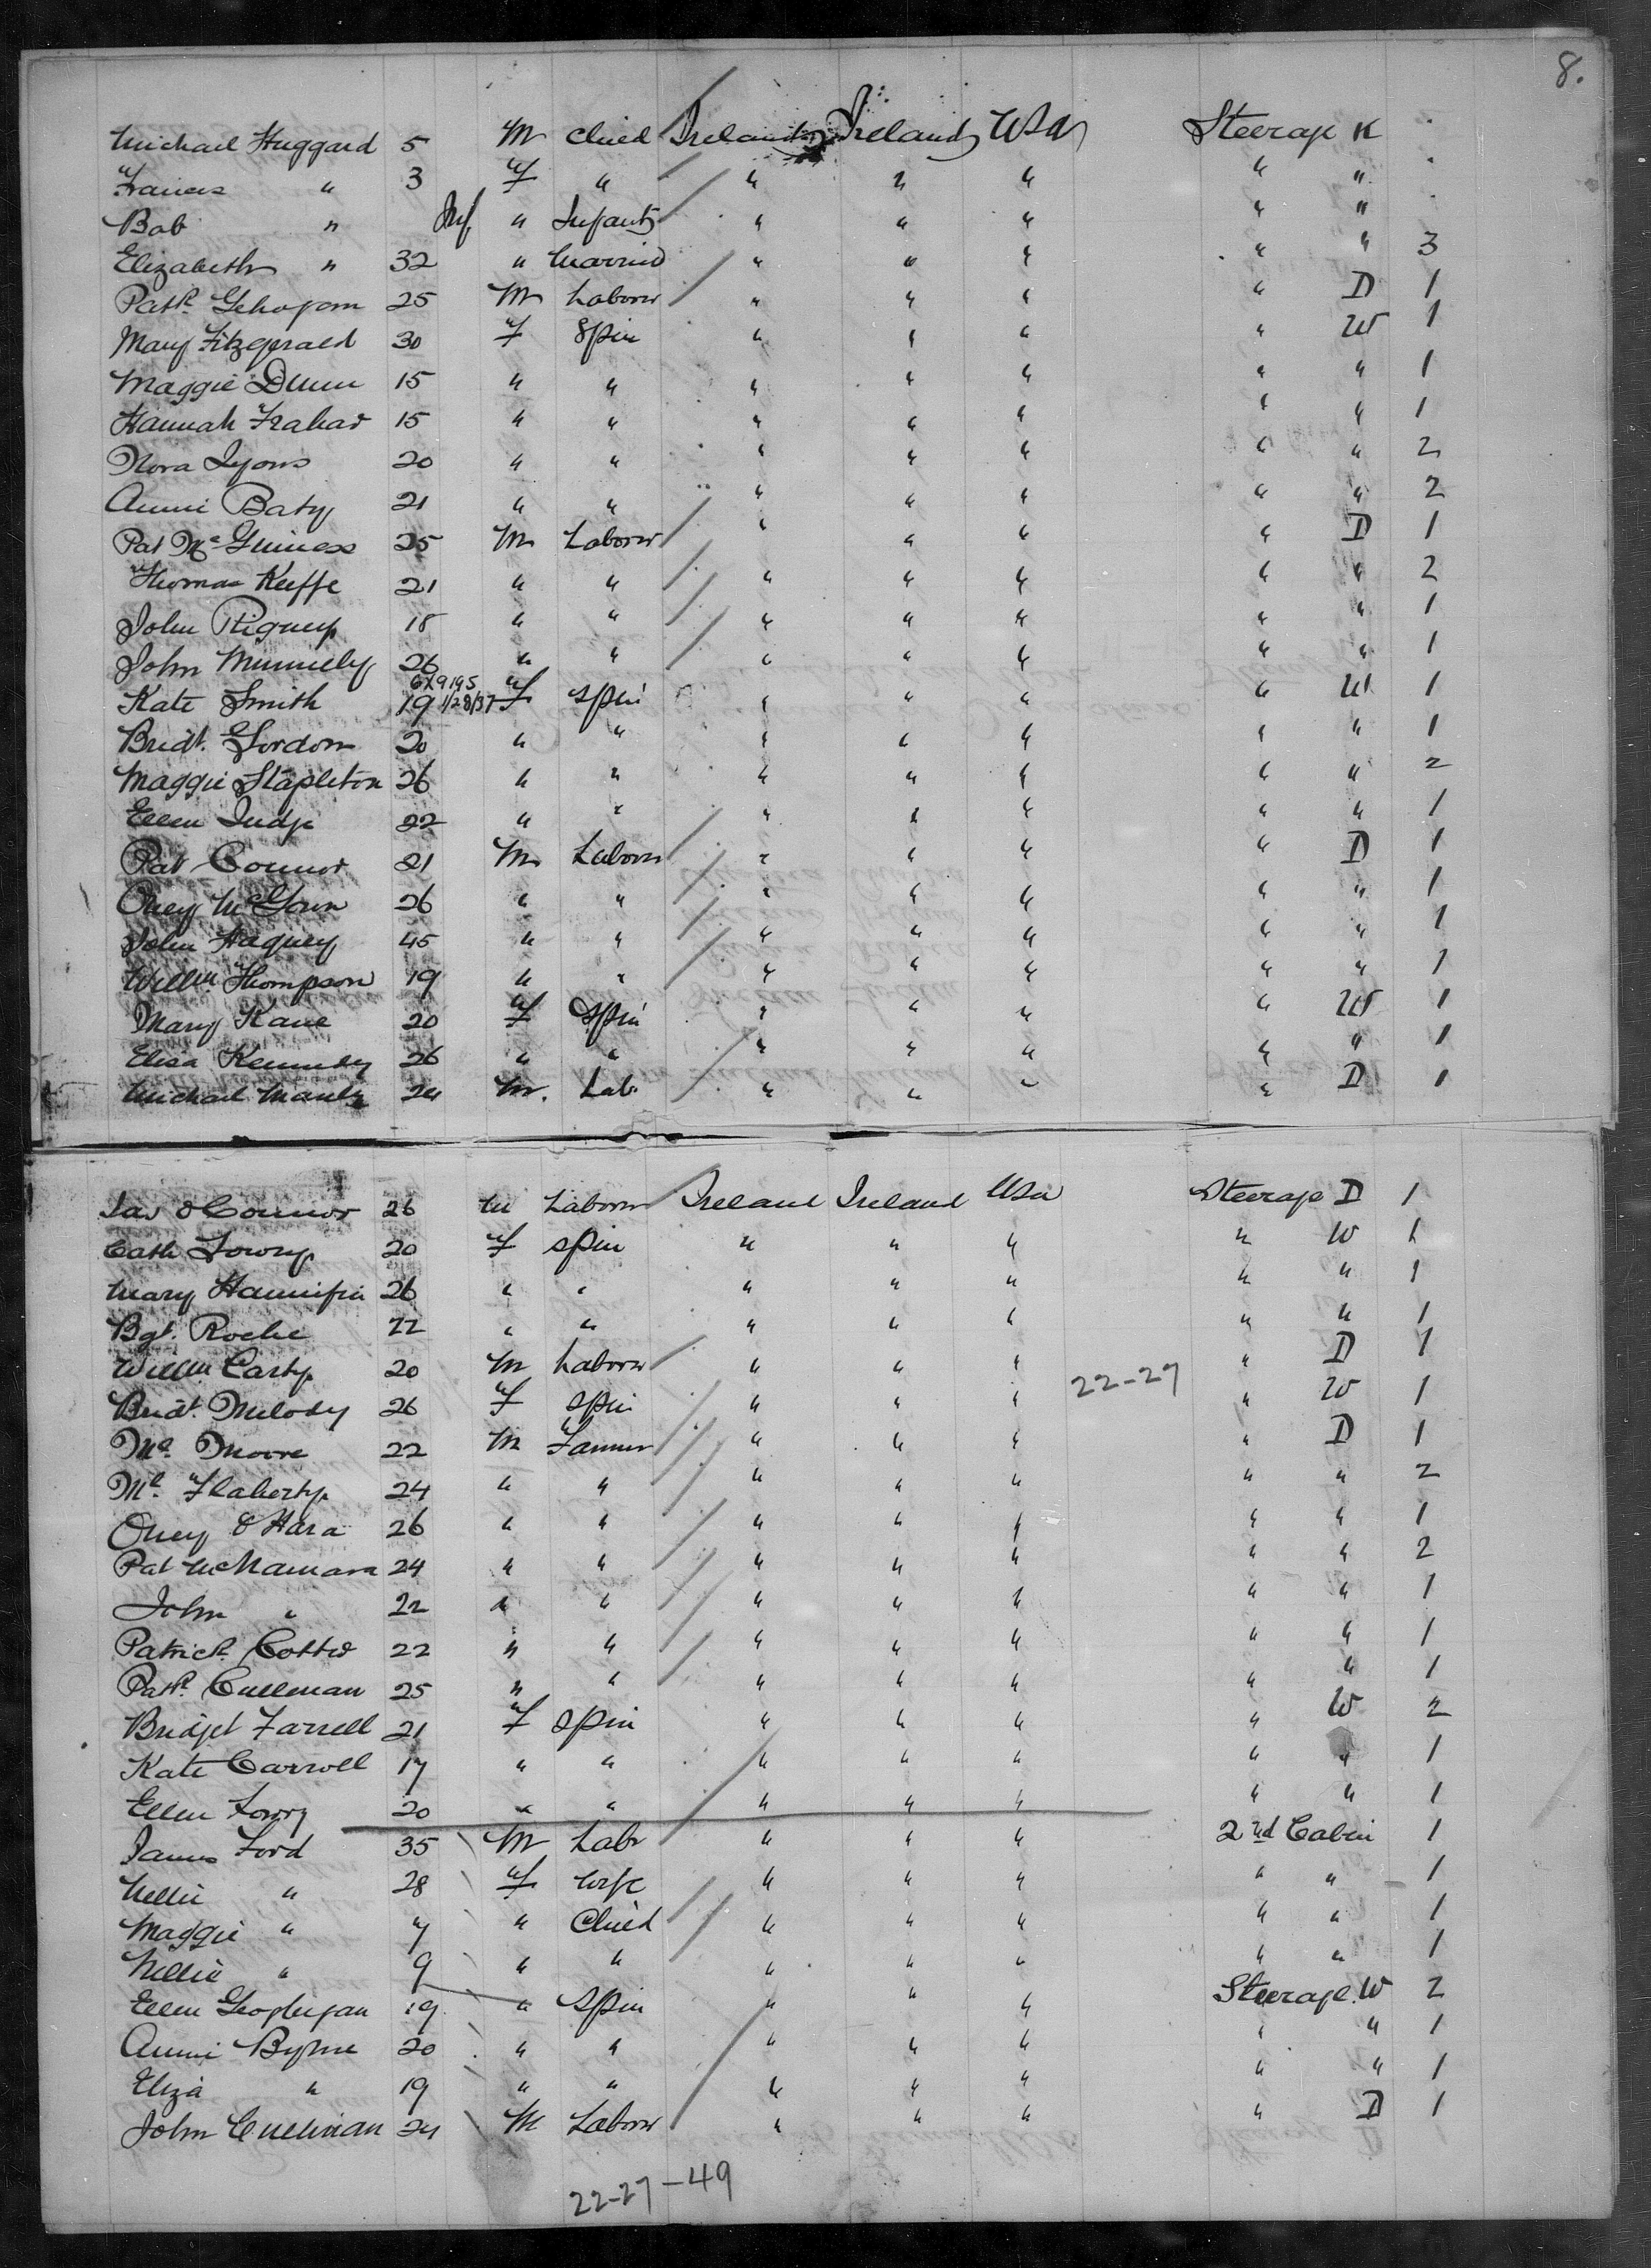 8.
Michael Huggard 5 M Child Ireland Ireland USA Steerage K
Frances " 3 F " " " " " "
Bab " Inf. " Infant " " " " "
Elizabeth " 32 " Married " " " " " 3
Patk. Gehogan 25 M Laborer " " " " D 1
Mary Fitzgerald 30 F Spin " " " " W 1
Maggie Dunn 15 " " " " " " " 1
Hannah 15 " " " " " " " 1
Nora Lyons 20 " " " " " " " 2
Annie Baty 21 " " " " " " " 2
Pat McGuiness 25 M Laborer " " " " D 1
Thomas Keeffe 21 " " " " " " " 2
John 18 " " " " " " " 1
John Munnelly 26 " " " " " " " 1
6X9195
Kate Smith 19 1/28/37 F Spin " " " " W 1
Bridt. Gordon 20 " " " " " " " 1
Maggie Stapleton 26 " " " " " " " 2
Ellen Judge 22 " " " " " " " 1
Pat Connor 21 M Laborer " " " " D 1
Owey McGown 26 " " " " " " " 1
John Haguey 45 " " " " " " " 1
Willm. Thompson 19 " " " " " " " 1
Mary Kane 20 F Spin " " " " W 1
Elisa Kennedy 26 " " " " " " " 1
Michael Manly 24 M. Lab. " " " " D 1
Jas O'Connor 26 M Laborer Ireland Ireland USA Steerage D 1
Cath Lowry 20 F Spin " " " " W 1
Mary Hannifin 26 " " " " " " " 1
Bgt. Roche 22 " " " " " " " 1
Willm Carty 20 M Laborer " " " " D 1
22-27
Bridt. Melody 26 F Spin " " " " W 1
Ml. Moore 22 M Farmer " " " " D 1
Ml. Flaherty 24 " " " " " " " 2
Owey O'Hara 26 " " " " " " " 1
Pat McNamara 24 " " " " " " " 2
John " 22 " " " " " " " 1
Patrick Cotter 22 " " " " " " " 1
Patk. Cullinan 25 " " " " " " " 1
Bridget Farrell 21 F Spin " " " " W 2
Kate Carroll 17 " " " " " " " 1
Ellen Lowry 20 " " " " " " " 1
James Ford 35 M Labr " " " 2nd Cabin 1
Nellie " 28 F Wife " " " " " 1
Maggie " 7 " Child " " " " " 1
Nellie " 9 " " " " " " " 1
Ellen Geoghegan 19 " Spin " " " Steerage W 2
Annie Byrne 20 " " " " " " " 1
Eliza " 19 " " " " " " " 1
John Cullinan 24 M Laborer " " " " D 1
22-27-49